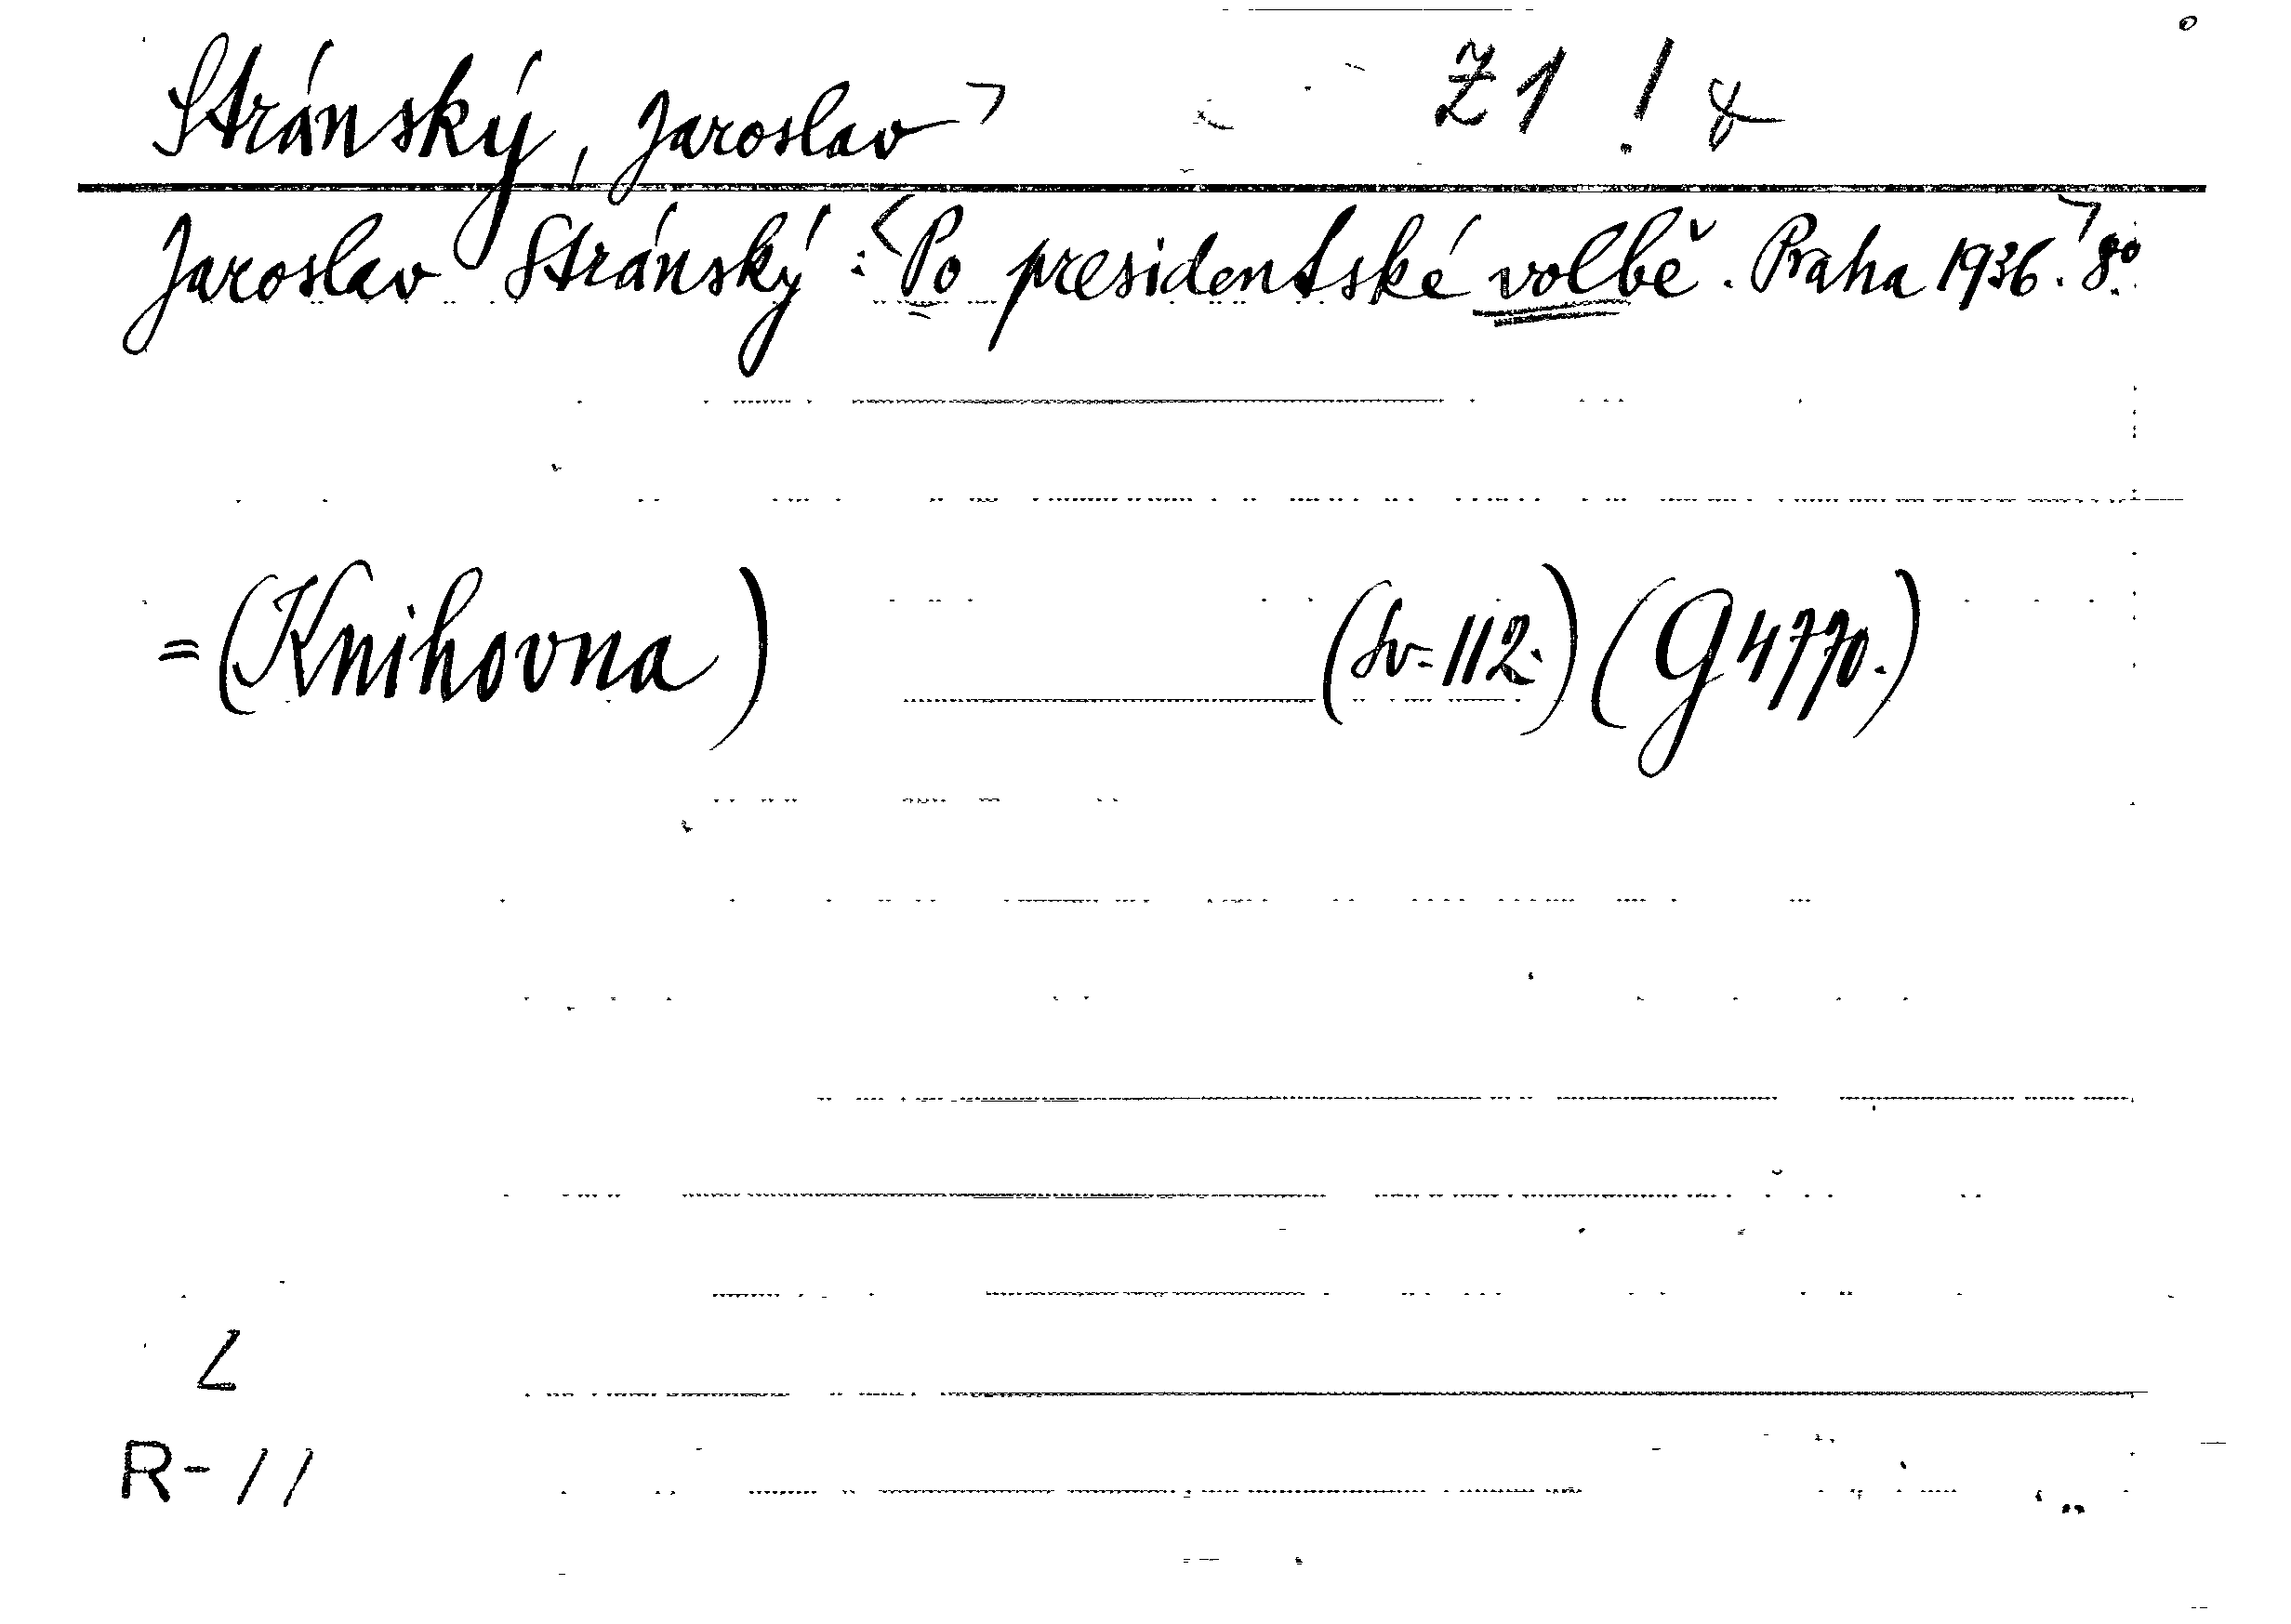 Stránský, Jaroslav Z 1 !
Jaroslav Stránský: Po presidentské volbě. Praha 1936. 8°.
= (Knihovna) (Sv. 112.) (G 4770.)
L
R-11